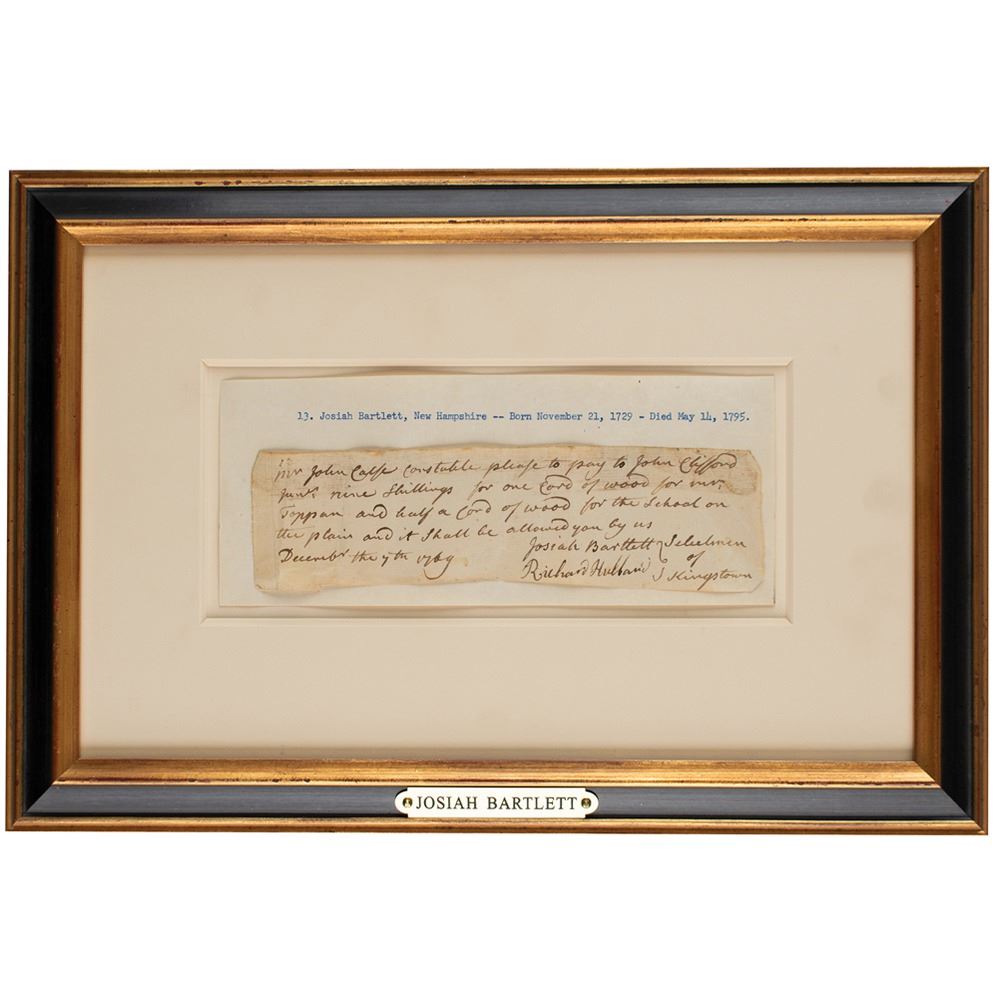 13. Josiah Bartlett, New Hampshire -- Born November 21, 1729 - Died May 14, 1795.
Mr John Calfe Constable please to pay to John Clifford
Junr. nine Shillings for one Cord of wood for mr.
Toppan and half a Cord of wood for the School on
the plain and it Shall be allowed you by us
Decembr the 7th 1769 Josiah Bartlett } Selectmen
of
Richard Hubbard } Kingstown
JOSIAH BARTLETT